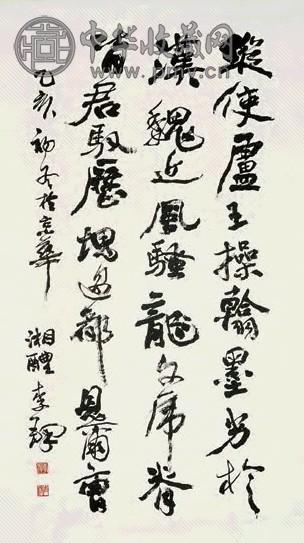 中华收藏网
縱使盧王操翰墨劣於
漢魏近風騷龍文虎脊
皆君馭歷塊過都見爾曹
乙亥初冬於京華
湘醴李鐸